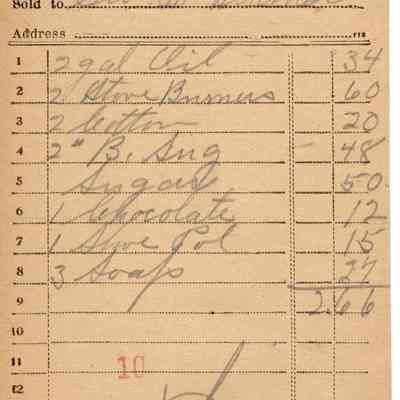 Sold to
Address
1 2 gal Oil 34
2 2 Stove Burners 60
3 2 Cotton 20
4 2 " B. Sug 48
5 Sugar 50
6 1 Chocolate 12
7 1 Stove Pol 15
8 3 Soaps 27
9 2.66
10
11 10
12